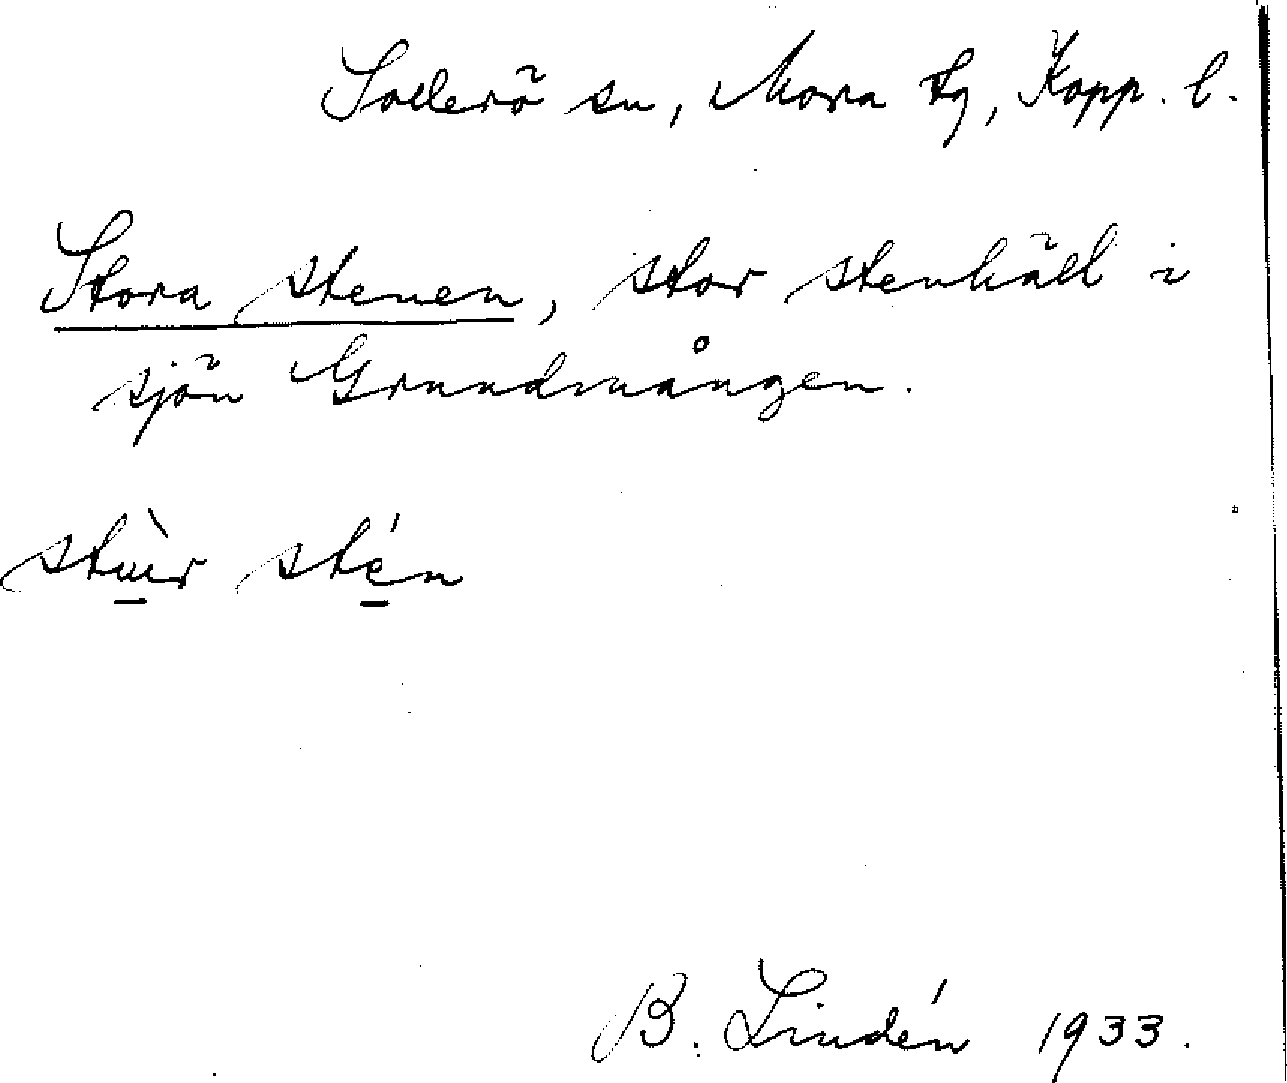 Sollerö sn, Mora tg, Kopp. l.
Stora stenen, stor stenhäll i
sjön Grundmången.
stùer stén
B. Lindén 1933.